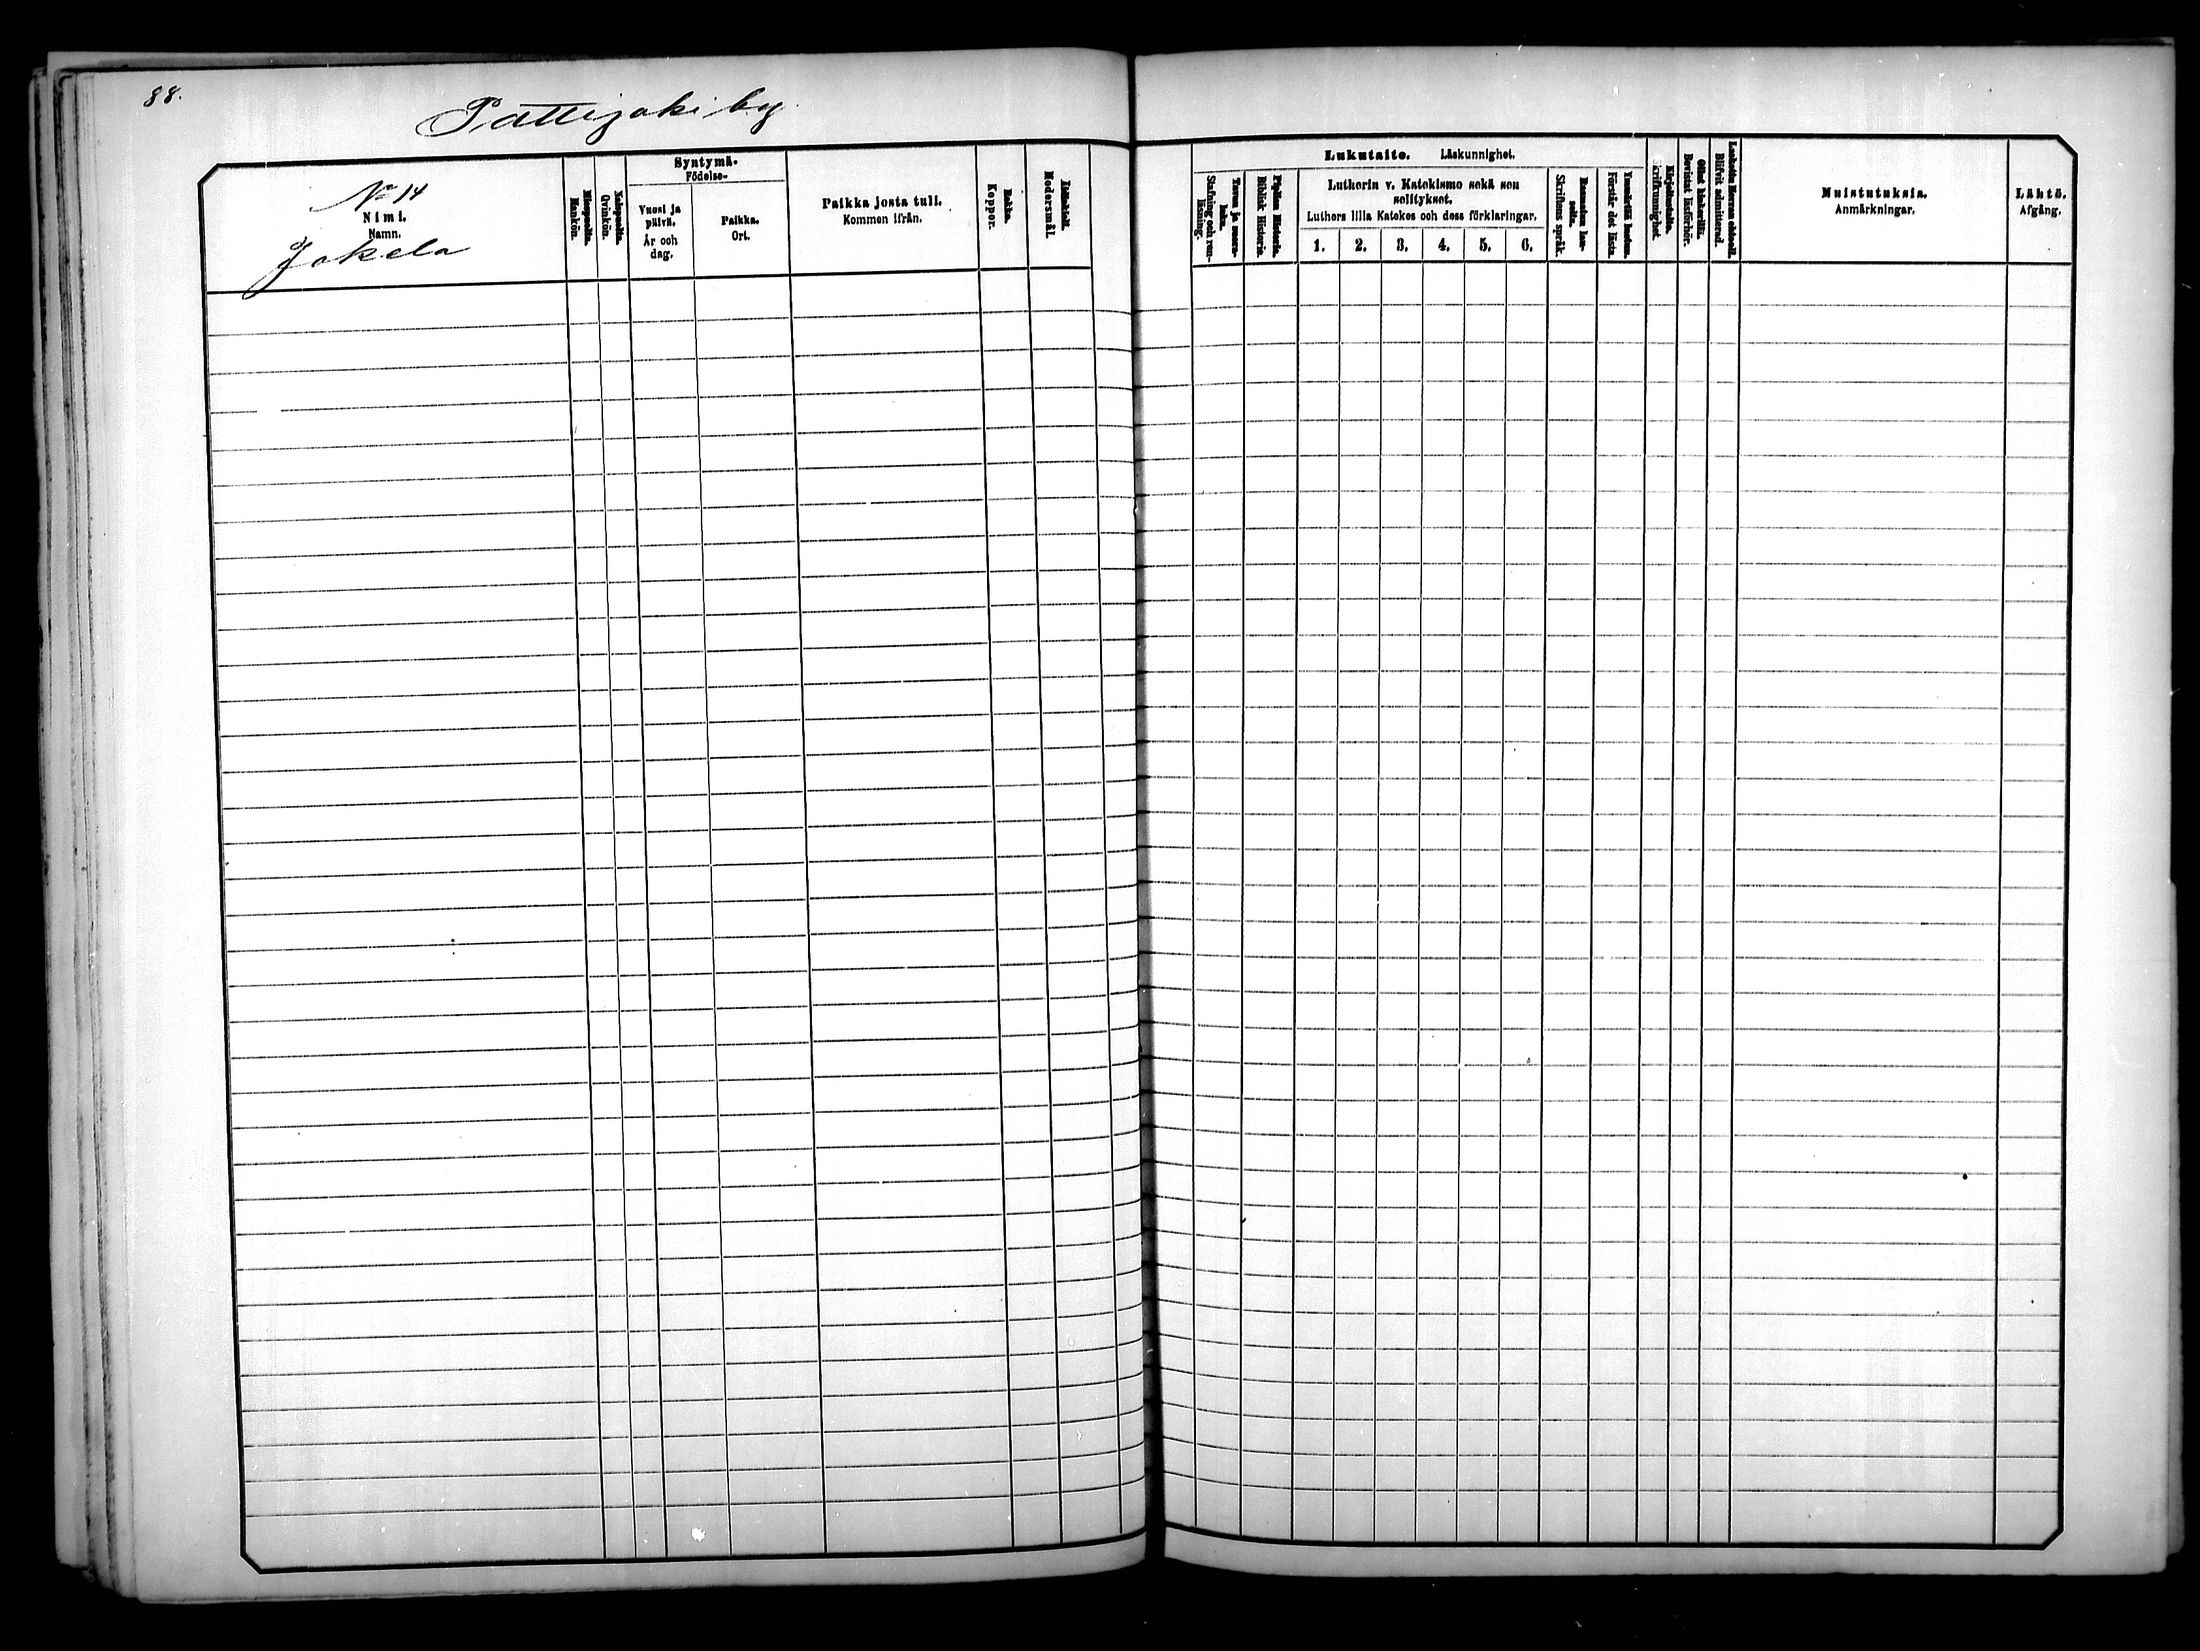 88.
Pattijoki by
No 14
Nimi.
Namn.
Jokela
Miespuolia.
Mankön.
Naispuolia.
Qvinkön.
Syntymä-
Födelse-
Vuosi ja
päivä.
År och
dag.
Paikka.
Ort.
Paikka josta tuli.
Kommen ifrån.
Rokko.
Koppor.
Äidinkieli.
Modersmål.
Lukutaito. Läskunnighet.
Tavuu ja suora-
luku.
Stafning och ren-
läsning.
Piplian Historia.
Biblisk Historia.
Lutherin v. Katekismo sekä sen
selitykset.
Luthers lilla Katekes och dess förklaringar.
1. 2. 3. 4. 5. 6.
Raamatun lau-
seita.
Skriftens språk.
Ymmärtää luetun.
Förstår det lästa.
Kirjoitustaito.
Skrifkunnighet.
Ollut lukusilla.
Bevistat läsförhör.
Laskettu Herran ehtool.
Blifvit admitterad.
Muistutuksia.
Anmärkningar.
Lähtö.
Afgång.